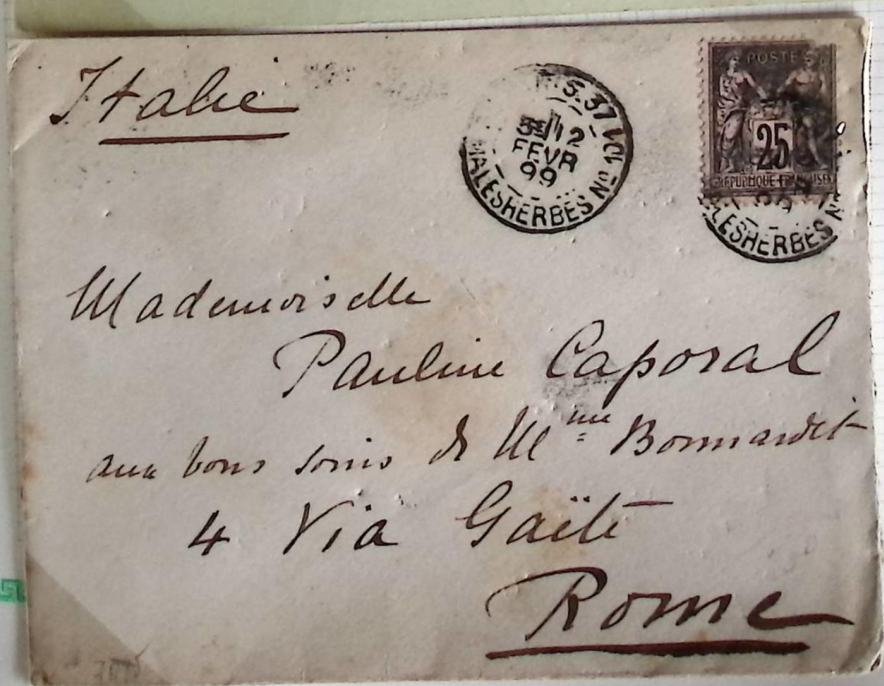 Italie
5.37
12
FEVR
99
MALESHERBES No
POSTES
25
REPUBLIQUE FRANCAISE
99
LESHERBES No
Mademoiselle
Pauline Caporal
aux bons soins de Mme Bonnardet
4 Via Gaëte
Rome